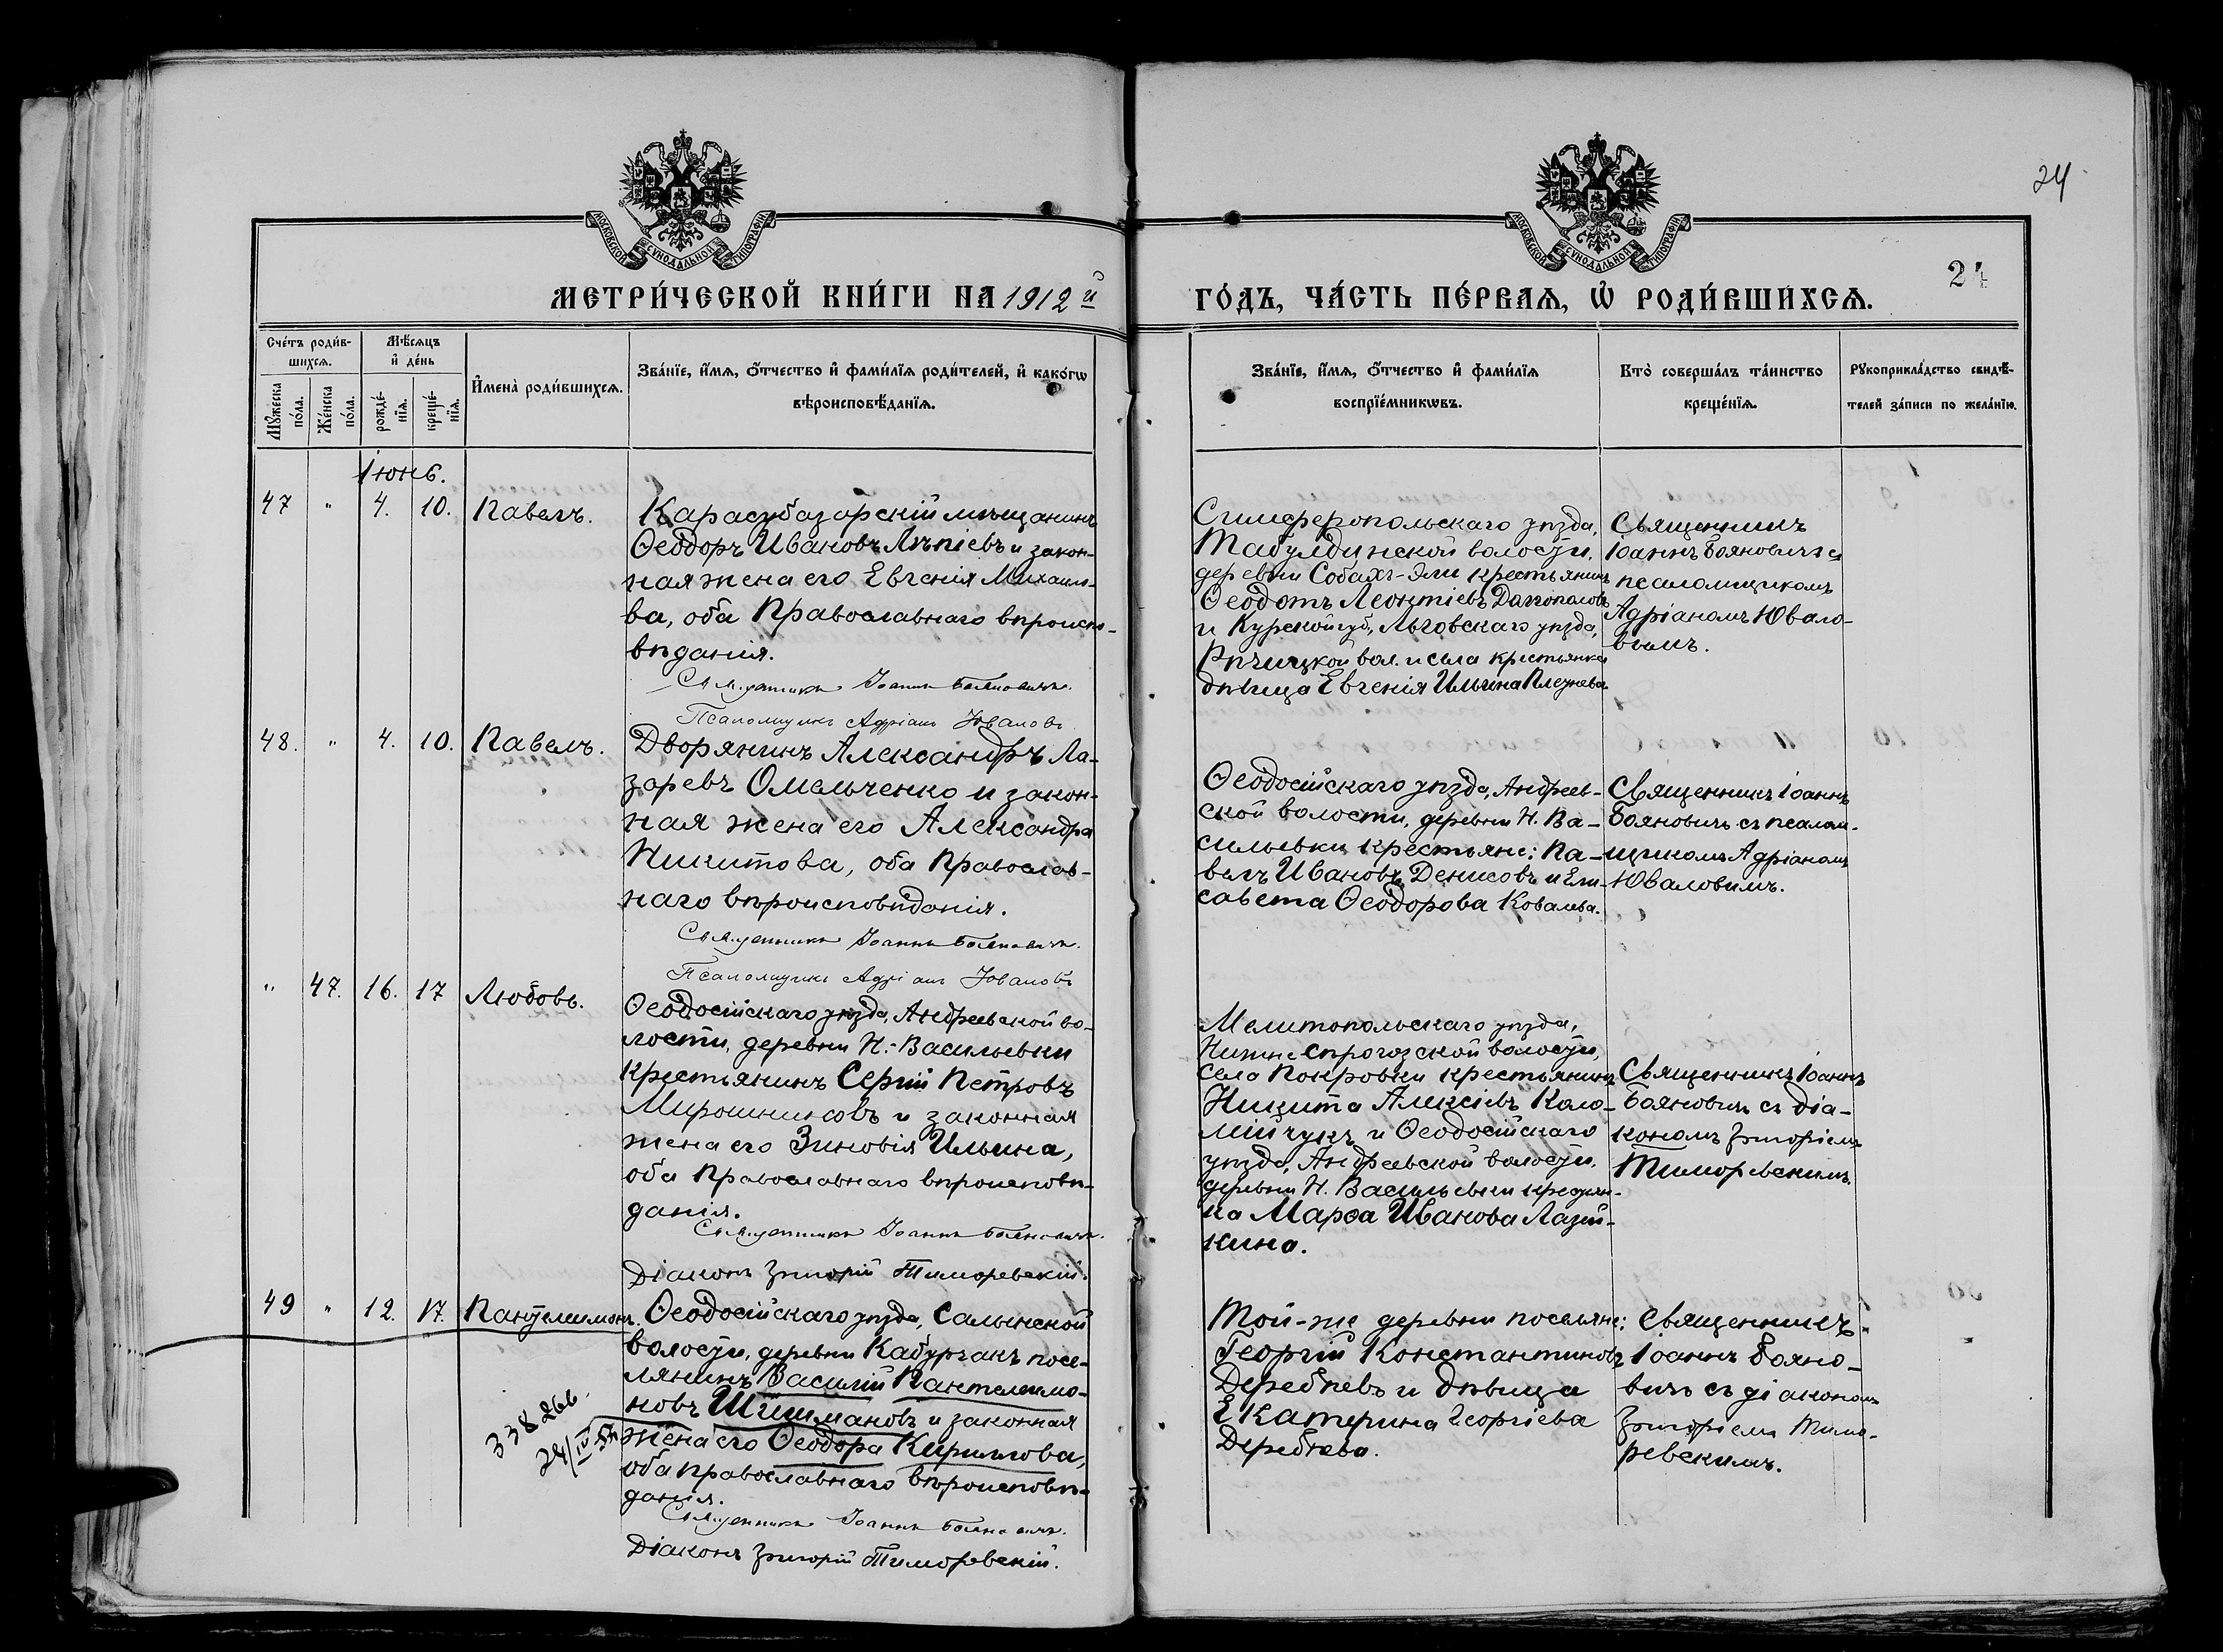 24
МОСКОВСКОЙ СѴНОДАЛЬНОЙ ТИПОГРАФІИ
МОСКОВСКОЙ СѴНОДАЛЬНОЙ ТИПОГРАФІИ
МЕТРИ́ЧЕСКОЙ КНИ́ГИ НА 1912й
ГО́ДЪ, ЧА́СТЬ ПЕ́РВАѦ, Ѡ РОДИ́ВШИХСѦ.
24
Сче́тъ роди́в-
шихсѧ.
Мѣ́сѧцъ
и де́нь
Мꙋ́жеска
по́ла.
Же́нска
по́ла.
рожде́-
нїѧ.
креще́-
нїѧ.
И҆мена̀ роди́вшихсѧ.
Зва́нїе, и҆́мѧ, ѻ҆́тчество и҆ фами́лїѧ роди́телей, и҆ како́гѡ
вѣроисповѣ́данїѧ.
Зва́нїе, и҆́мѧ, ѻ҆́тчество и҆ фами́лїѧ
воспрїе́мникѡвъ.
Кто̀ соверша́лъ та́инство
креще́нїѧ.
Рꙋкоприкла́дство свидѣ́-
телей за́писи по жела́нїю.
Іюнь.
47 " 4. 10. Павелъ.
Карасубазарскій мѣщанинъ
Ѳеодоръ Ивановъ и закон-
ная жена его Евгенія Михаило-
ва, оба Православнаго вѣроиспо-
вѣданія.
Священникъ Іоаннъ Бояновичъ.
Псаломщикъ Адріанъ Юваловъ
Симферопольскаго уѣзда,
Табулдинской волости,
деревни Собахъ-Эли крестьянинъ
Ѳеодотъ Леонтіевъ
и Курской губ., Льговскаго уѣзда,
Рѣчицкой вол. и села крестьянка
дѣвица Евгенія Ильина Плезнева
Священникъ
Іоаннъ Бояновичъ съ
псаломщикомъ
Адріаномъ Ювало-
вымъ.
48. " 4. 10. Павелъ.
Дворянинъ Александръ Ла-
заревъ Омельченко и закон-
ная жена его Александра
Никитова, оба Православ-
наго вѣроисповѣданія.
Священникъ Іоаннъ Бояновичъ.
Псаломщикъ Адріанъ Юваловъ
Ѳеодосійскаго уѣзда, Андреев-
ской волости, деревни Н. Ва-
сильевки крестьяне: Па-
велъ Ивановъ Денисовъ и Ели-
савета Ѳеодорова Ковалева.
Священникъ Іоаннъ
Бояновичъ съ псалом-
щикомъ Адріаномъ
Юваловымъ.
" 47. 16. 17 Любовь.
Ѳеодосійскаго уѣзда, Андреевской во-
лости, деревни Н.-Васильевки
крестьянинъ Сергій Петровъ
Мирошниковъ и законная
жена его Зиновія Ильина,
оба Православнаго вѣроисповѣ-
данія.
Священникъ Іоаннъ Бояновичъ.
Діаконъ Григорій Тиморевскій.
Мелитопольскаго уѣзда,
волости,
села Покровки крестьянинъ
Никита Алексіевъ Коло-
мійчукъ и Ѳеодосійскаго
уѣзда, Андреевской волости,
деревни Н. Васильевки крестьян-
ка Марѳа Иванова Лазей-
кина.
Священникъ Іоаннъ
Бояновичъ съ діа-
кономъ Григоріемъ
Тиморевскимъ.
49 " 12. 17. Пантелимонъ.
Ѳеодосійскаго уѣзда, Салынской
волости, деревни Кабурчакъ посе-
лянинъ Василій Пантелеимо-
новъ Шишмановъ и законная
жена его Ѳеодора Кириллова,
оба православнаго вѣроисповѣ-
данія.
Священникъ Іоаннъ Бояновичъ.
Діаконъ Григорій Тиморевскій.
338266.
24/IV-55
Той-же деревни поселяне:
Георгій Константиновъ
Деребѣевъ и дѣвица
Екатерина Георгіева
Деребѣева.
Священникъ
Іоаннъ Бояно-
вичъ съ діакономъ
Григоріемъ Тимо-
ревскимъ.